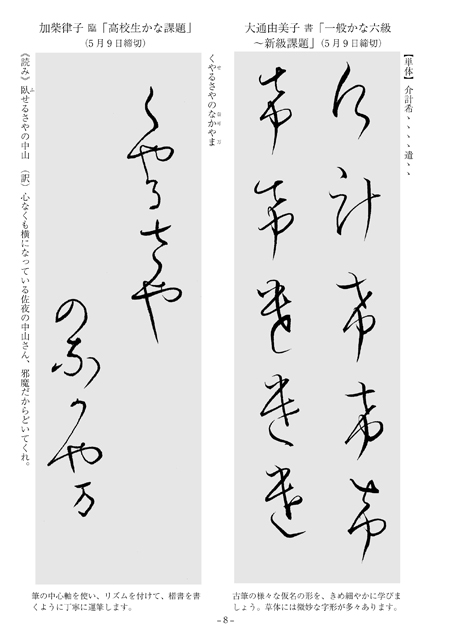 大通由美子 書「一般かな六級
～新級課題」(5月9日締切)
【単体】介計希、、、、遣、、
介計希希希
希希遣遣遣
古筆の様々な仮名の形を、きめ細やかに学びま
しょう。草体には微妙な字形が多々あります。
加柴律子 臨「高校生かな課題」
(5月9日締切)
くやるさやのなかやま
くやるさや
のなかや万
《読み》臥せるさやの中山 (訳)心なくも横になっている佐夜の中山さん、邪魔だからどいてくれ。
筆の中心軸を使い、リズムを付けて、楷書を書
くように丁寧に運筆します。
- 8 -